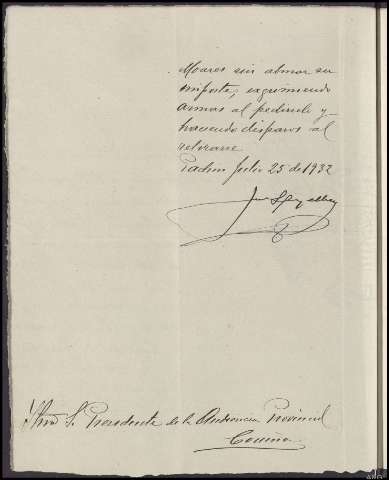 Moares sin abonar su
importe, esgrimiendo
armas al pedirselo y
haciendo disparos al
retirarse
Julio 25 de 1932
Ilmo S. Presidente de la Audiencia Provincial
Coruña